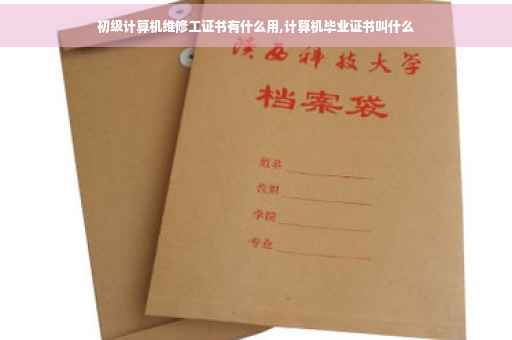 初级计算机维修工证书有什么用,计算机毕业证书叫什么
陕西科技大学
档案袋
姓名
学院
专业